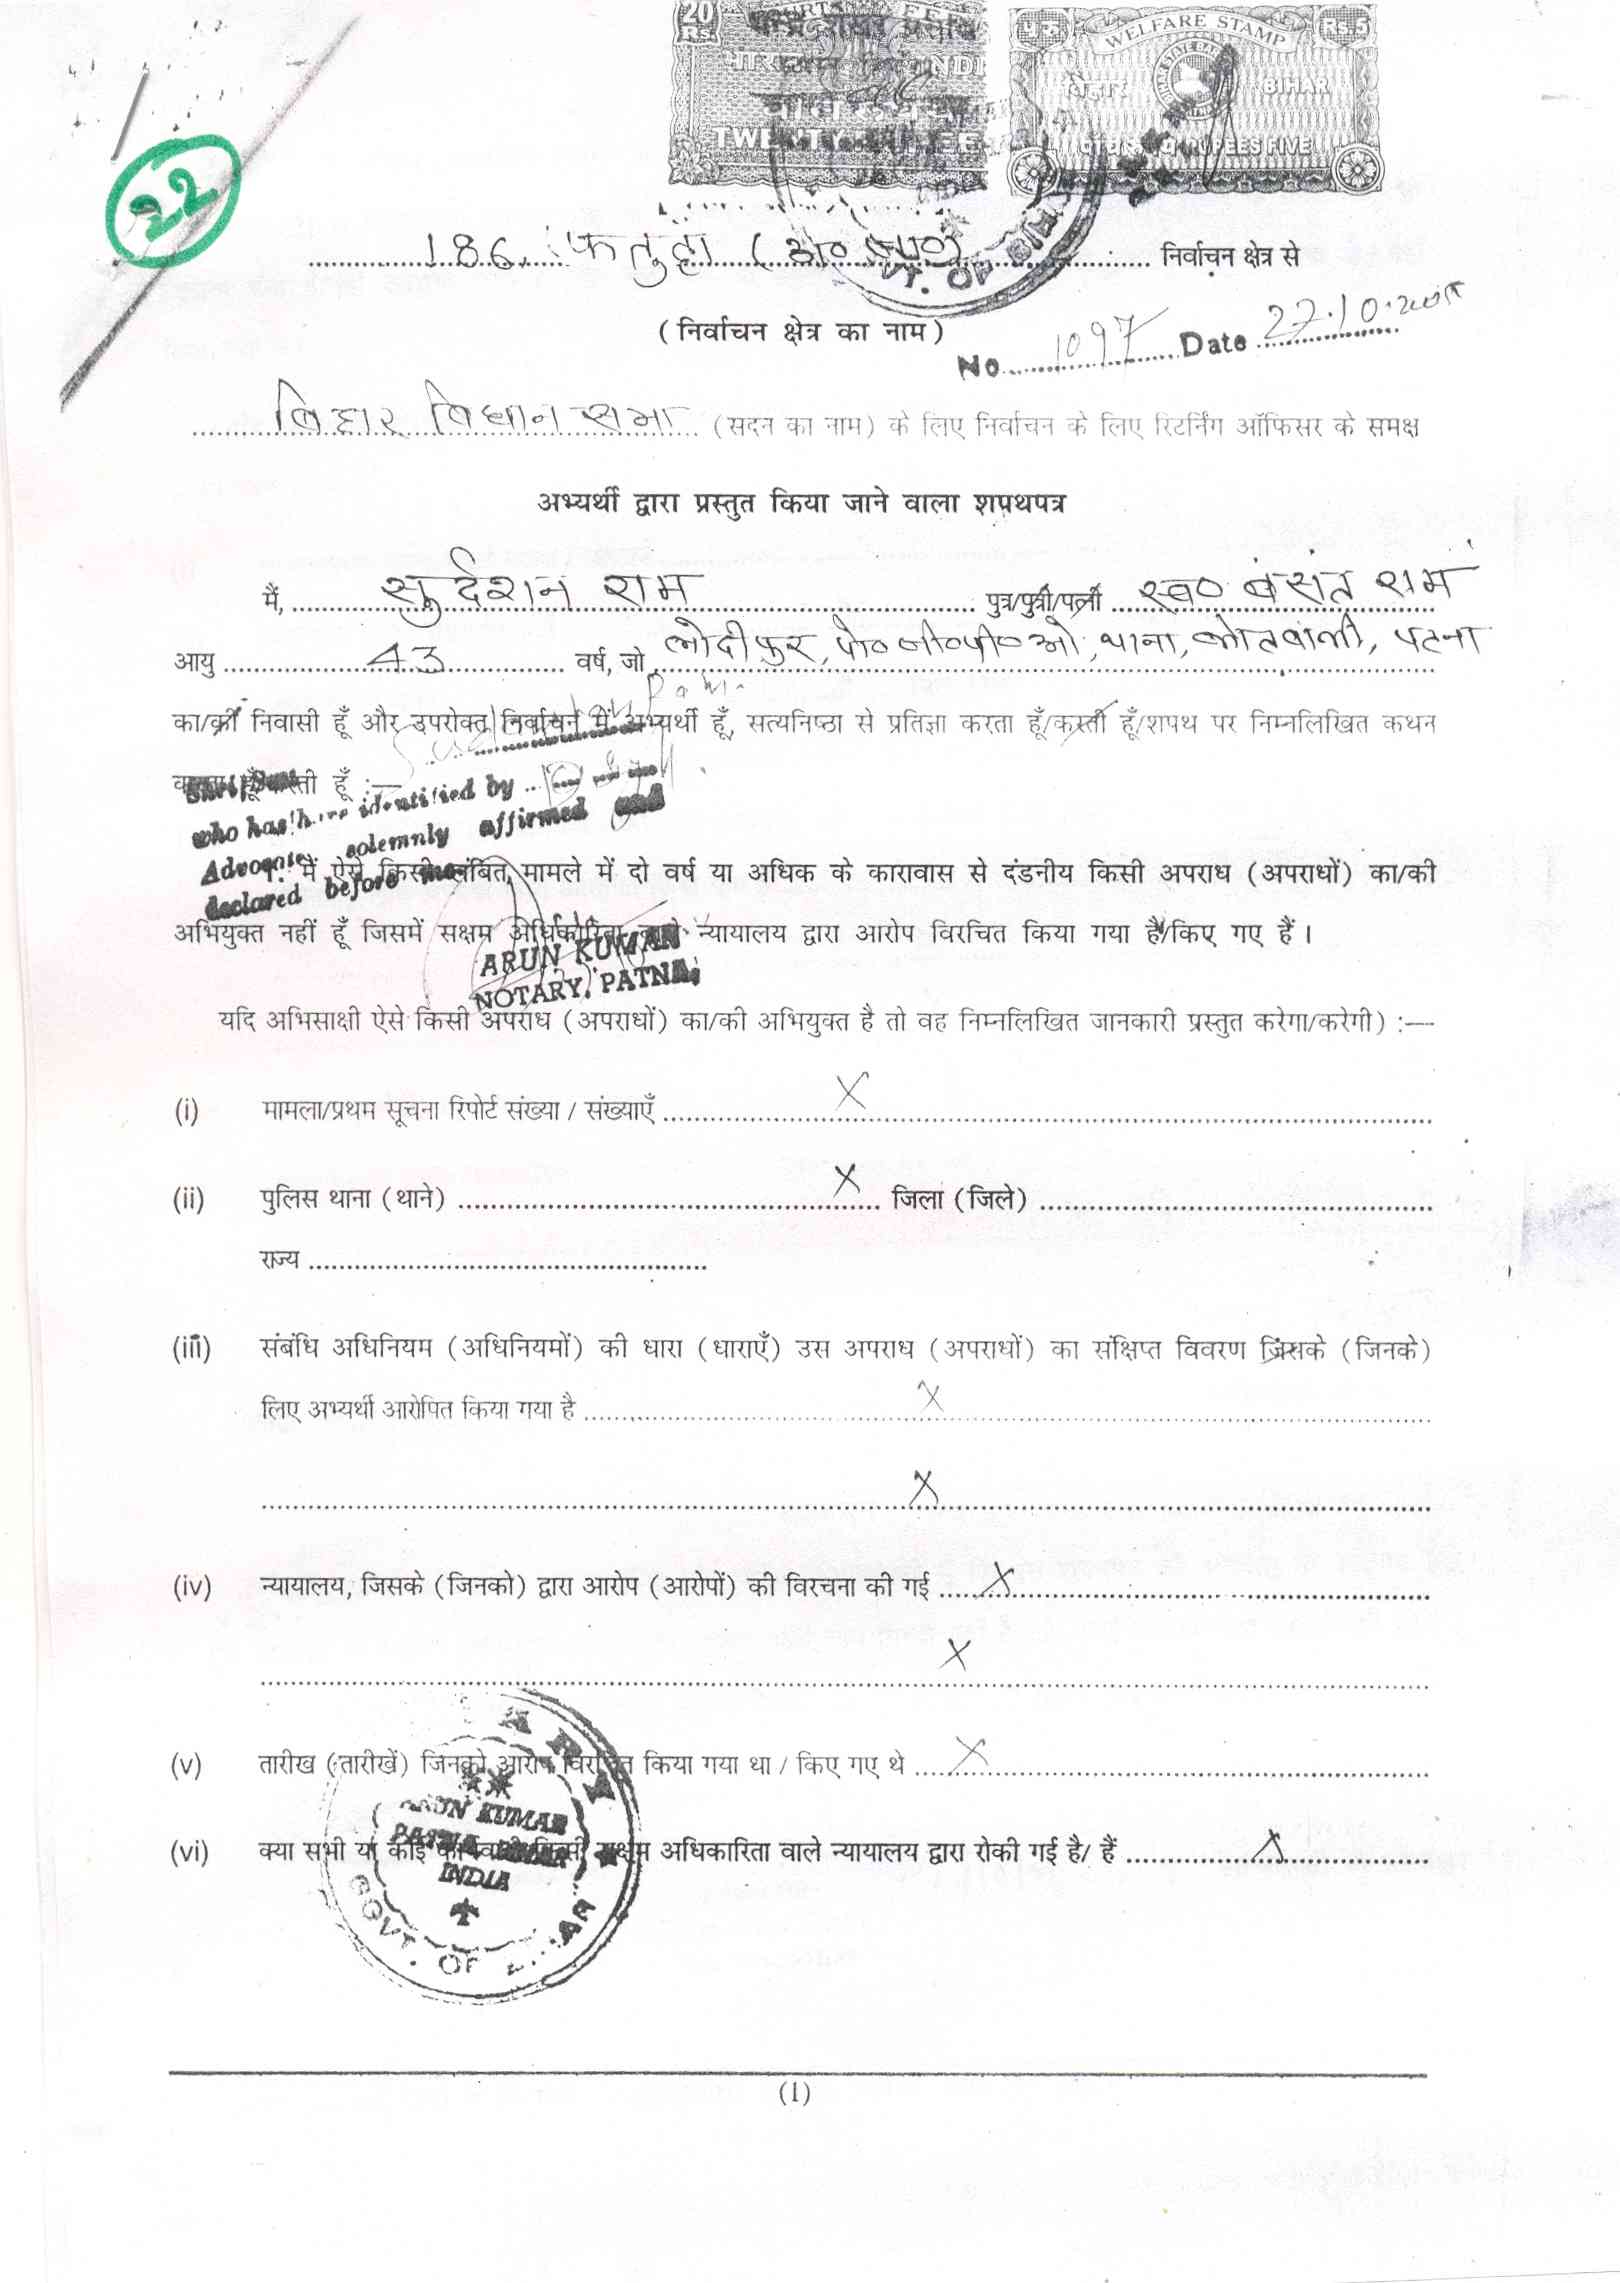 20 Rs.
COURT FEE
भारत INDIA
WELFARE STAMP
५ रु. Rs.5
बिहार BIHAR
पाँच रुपये RUPEES FIVE
22
186. फतुहा (अ० जा०) निर्वाचन क्षेत्र से
VT. OF BIHAR
(निर्वाचन क्षेत्र का नाम)
No. 1097 Date 27.10.2005
बिहार विधान सभा (सदन का नाम) के लिए निर्वाचन के लिए रिटर्निंग ऑफिसर के समक्ष
अभ्यर्थी द्वारा प्रस्तुत किया जाने वाला शपथपत्र
मैं, सुर्दशन राम पुत्र/पुत्री/पत्नी स्व० बंसंत राम
आयु 43 वर्ष, जो लोदीपुर, पो० जी०पी०ओ, थाना, कोतवाली, पटना
का/की निवासी हूँ और उपरोक्त निर्वाचन में अभ्यर्थी हूँ, सत्यनिष्ठा से प्रतिज्ञा करता हूँ/करती हूँ/शपथ पर निम्नलिखित कथन
करता हूँ/करती हूँ :—
who has been identified by
Advocate solemnly affirmed and
declared before me
1. मैं ऐसे किसी लंबित मामले में दो वर्ष या अधिक के कारावास से दंडनीय किसी अपराध (अपराधों) का/की
अभियुक्त नहीं हूँ जिसमें सक्षम अधिकारिता वाले न्यायालय द्वारा आरोप विरचित किया गया है/किए गए हैं ।
ARUN KUMAR
NOTARY, PATNA
यदि अभिसाक्षी ऐसे किसी अपराध (अपराधों) का/की अभियुक्त है तो वह निम्नलिखित जानकारी प्रस्तुत करेगा/करेगी) :—
(i) मामला/प्रथम सूचना रिपोर्ट संख्या / संख्याएँ X
(ii) पुलिस थाना (थाने) X जिला (जिले)
राज्य
(iii) संबंधि अधिनियम (अधिनियमों) की धारा (धाराएँ) उस अपराध (अपराधों) का संक्षिप्त विवरण जिसके (जिनके)
लिए अभ्यर्थी आरोपित किया गया है X
X
(iv) न्यायालय, जिसके (जिनको) द्वारा आरोप (आरोपों) की विरचना की गई X
X
(v) तारीख (तारीखें) जिनको आरोप विरचित किया गया था / किए गए थे X
(vi) क्या सभी या कोई कार्यवाही किसी सक्षम अधिकारिता वाले न्यायालय द्वारा रोकी गई है/ हैं X
ARUN KUMAR
PATNA
INDIA
GOVT. OF BIHAR
(1)